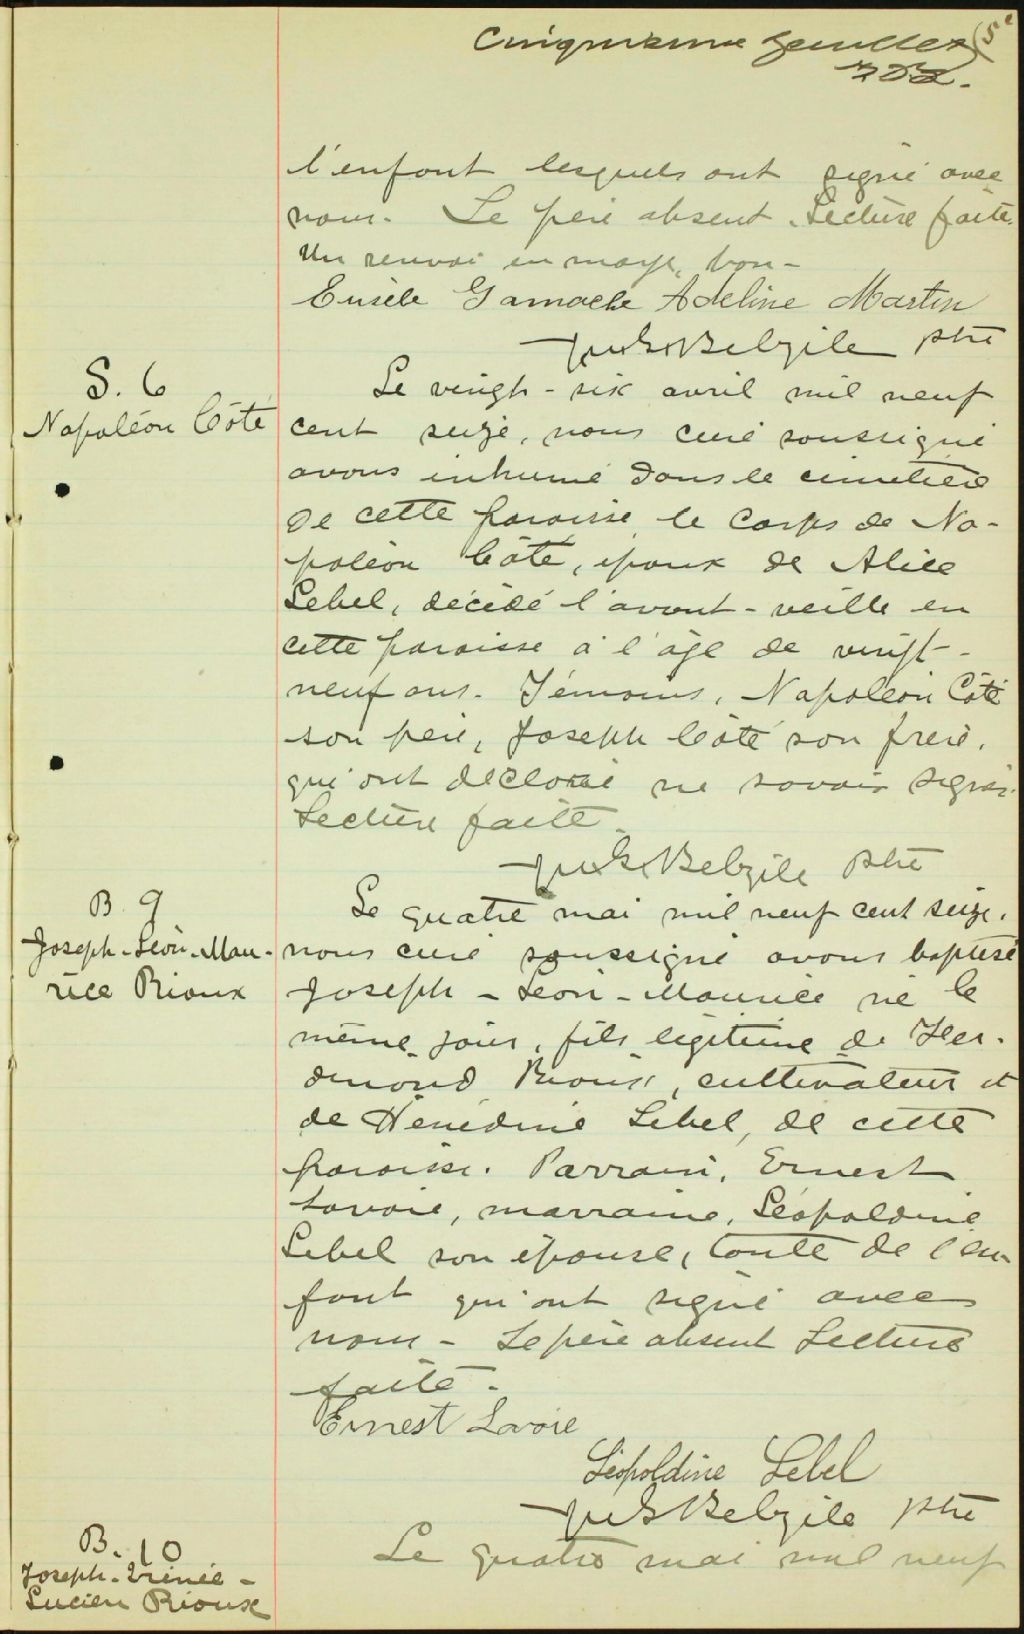 Cinquième feuillet (5e
l'enfant lesquels ont signé avec
nous. Le père absent. Lecture faite.
Un renvoi en marge, bon-
Eusèbe Gamache Adeline Martin
Belzile ptre
S. 6
Napoléon Côté
Le vingt-six avril mil neuf
cent seize, nous curé soussigné
avons inhumé dans le cimetière
de cette paroisse le corps de Na-
poléon Côté, époux de Alice
Lebel, décédé l'avant-veille en
cette paroisse à l'âge de vingt-
neuf ans. Témoins, Napoléon Côté
son père, Joseph Côté son frère,
qui ont déclaré ne savoir signer.
Lecture faite.
Belzile ptre
B. 9
Joseph-Léon-Mau-
rice Rioux
Le quatre mai mil neuf cent seize,
nous curé soussigné avons baptisé
Joseph-Léon-Maurice né le
même jour, fils légitime de
Rioux, cultivateur et
de Hénédine Lebel, de cette
paroisse. Parrain, Ernest
Lavoie, marraine, Léopoldine
Lebel son épouse, tante de l'en-
fant qui ont signé avec
nous- Le père absent Lecture
faite.
Ernest Lavoie
Léopoldine Lebel
Belzile ptre
B. 10
Joseph-Irénée-
Lucien Rioux
Le quatre mai mil neuf